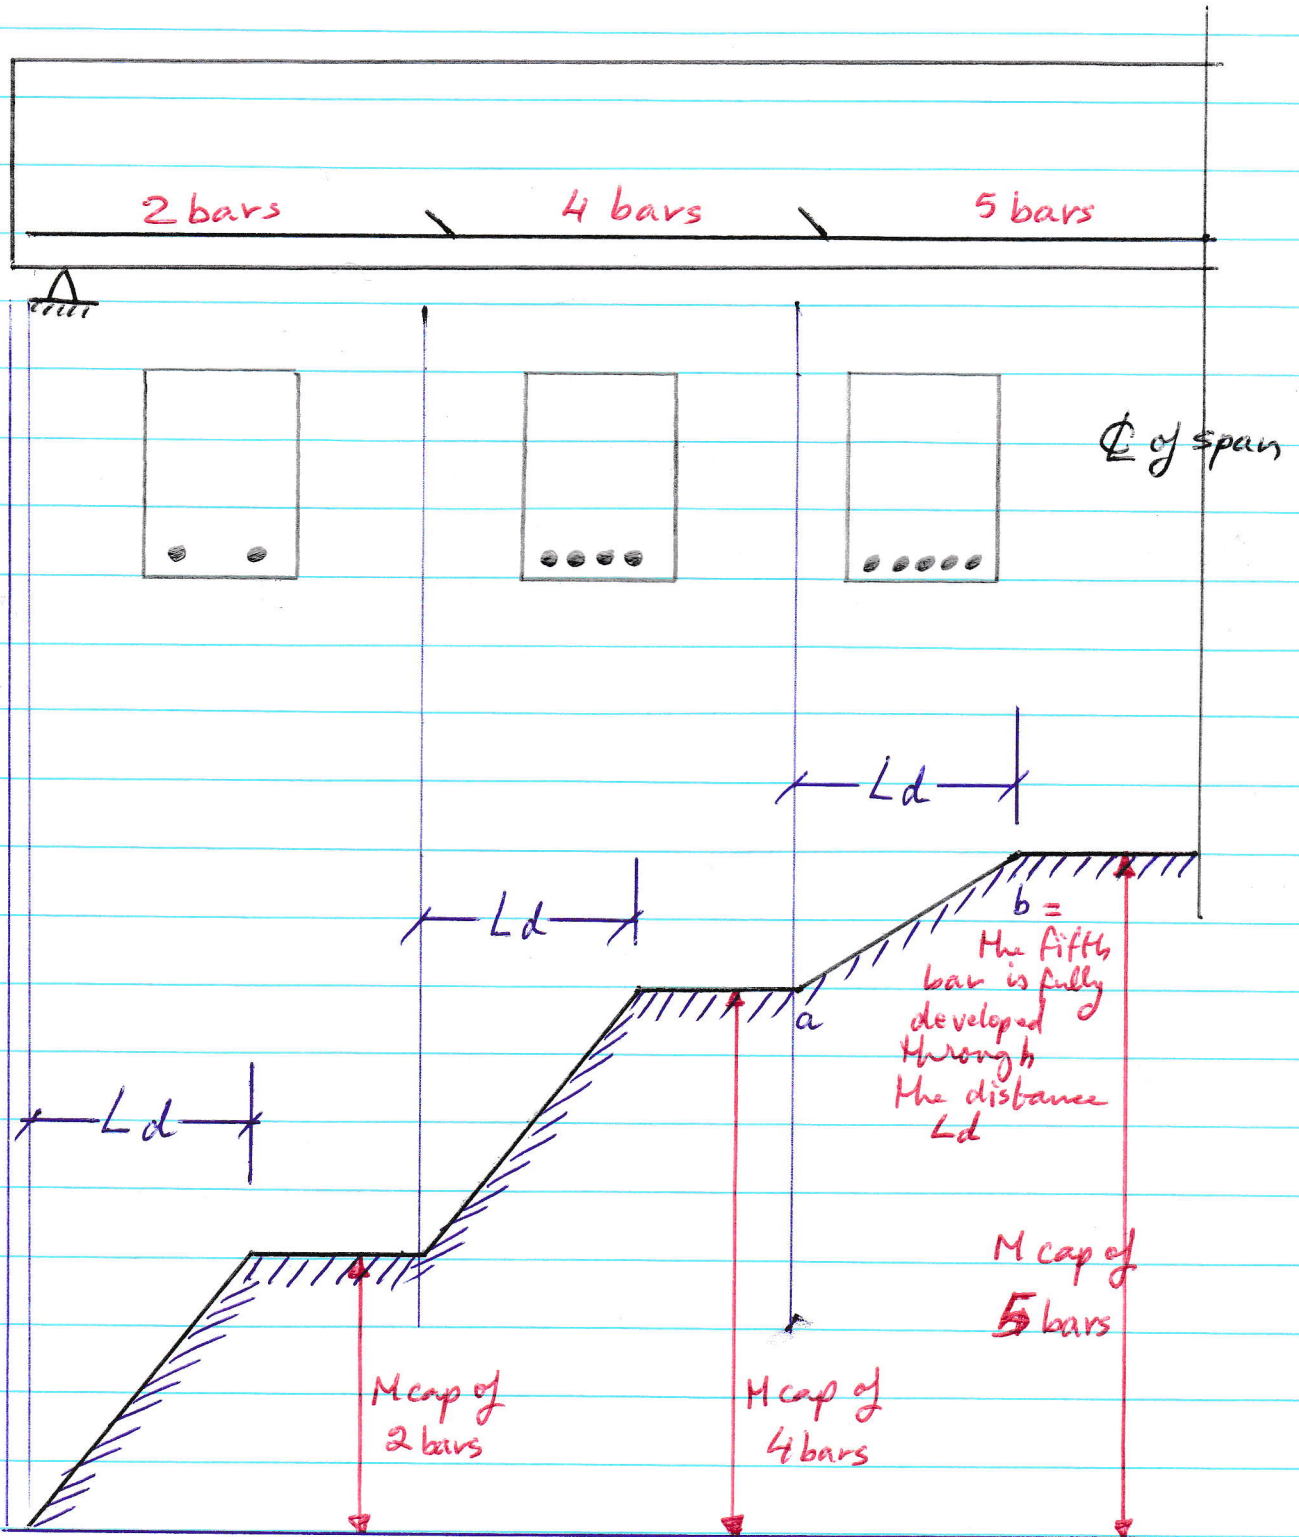 2 bars
4 bars
5 bars
℄ of span
Ld
Ld
b =
the fifth
bar is fully
developed
through
the distance
Ld
a
Ld
M cap of
5 bars
M cap of
2 bars
M cap of
4 bars